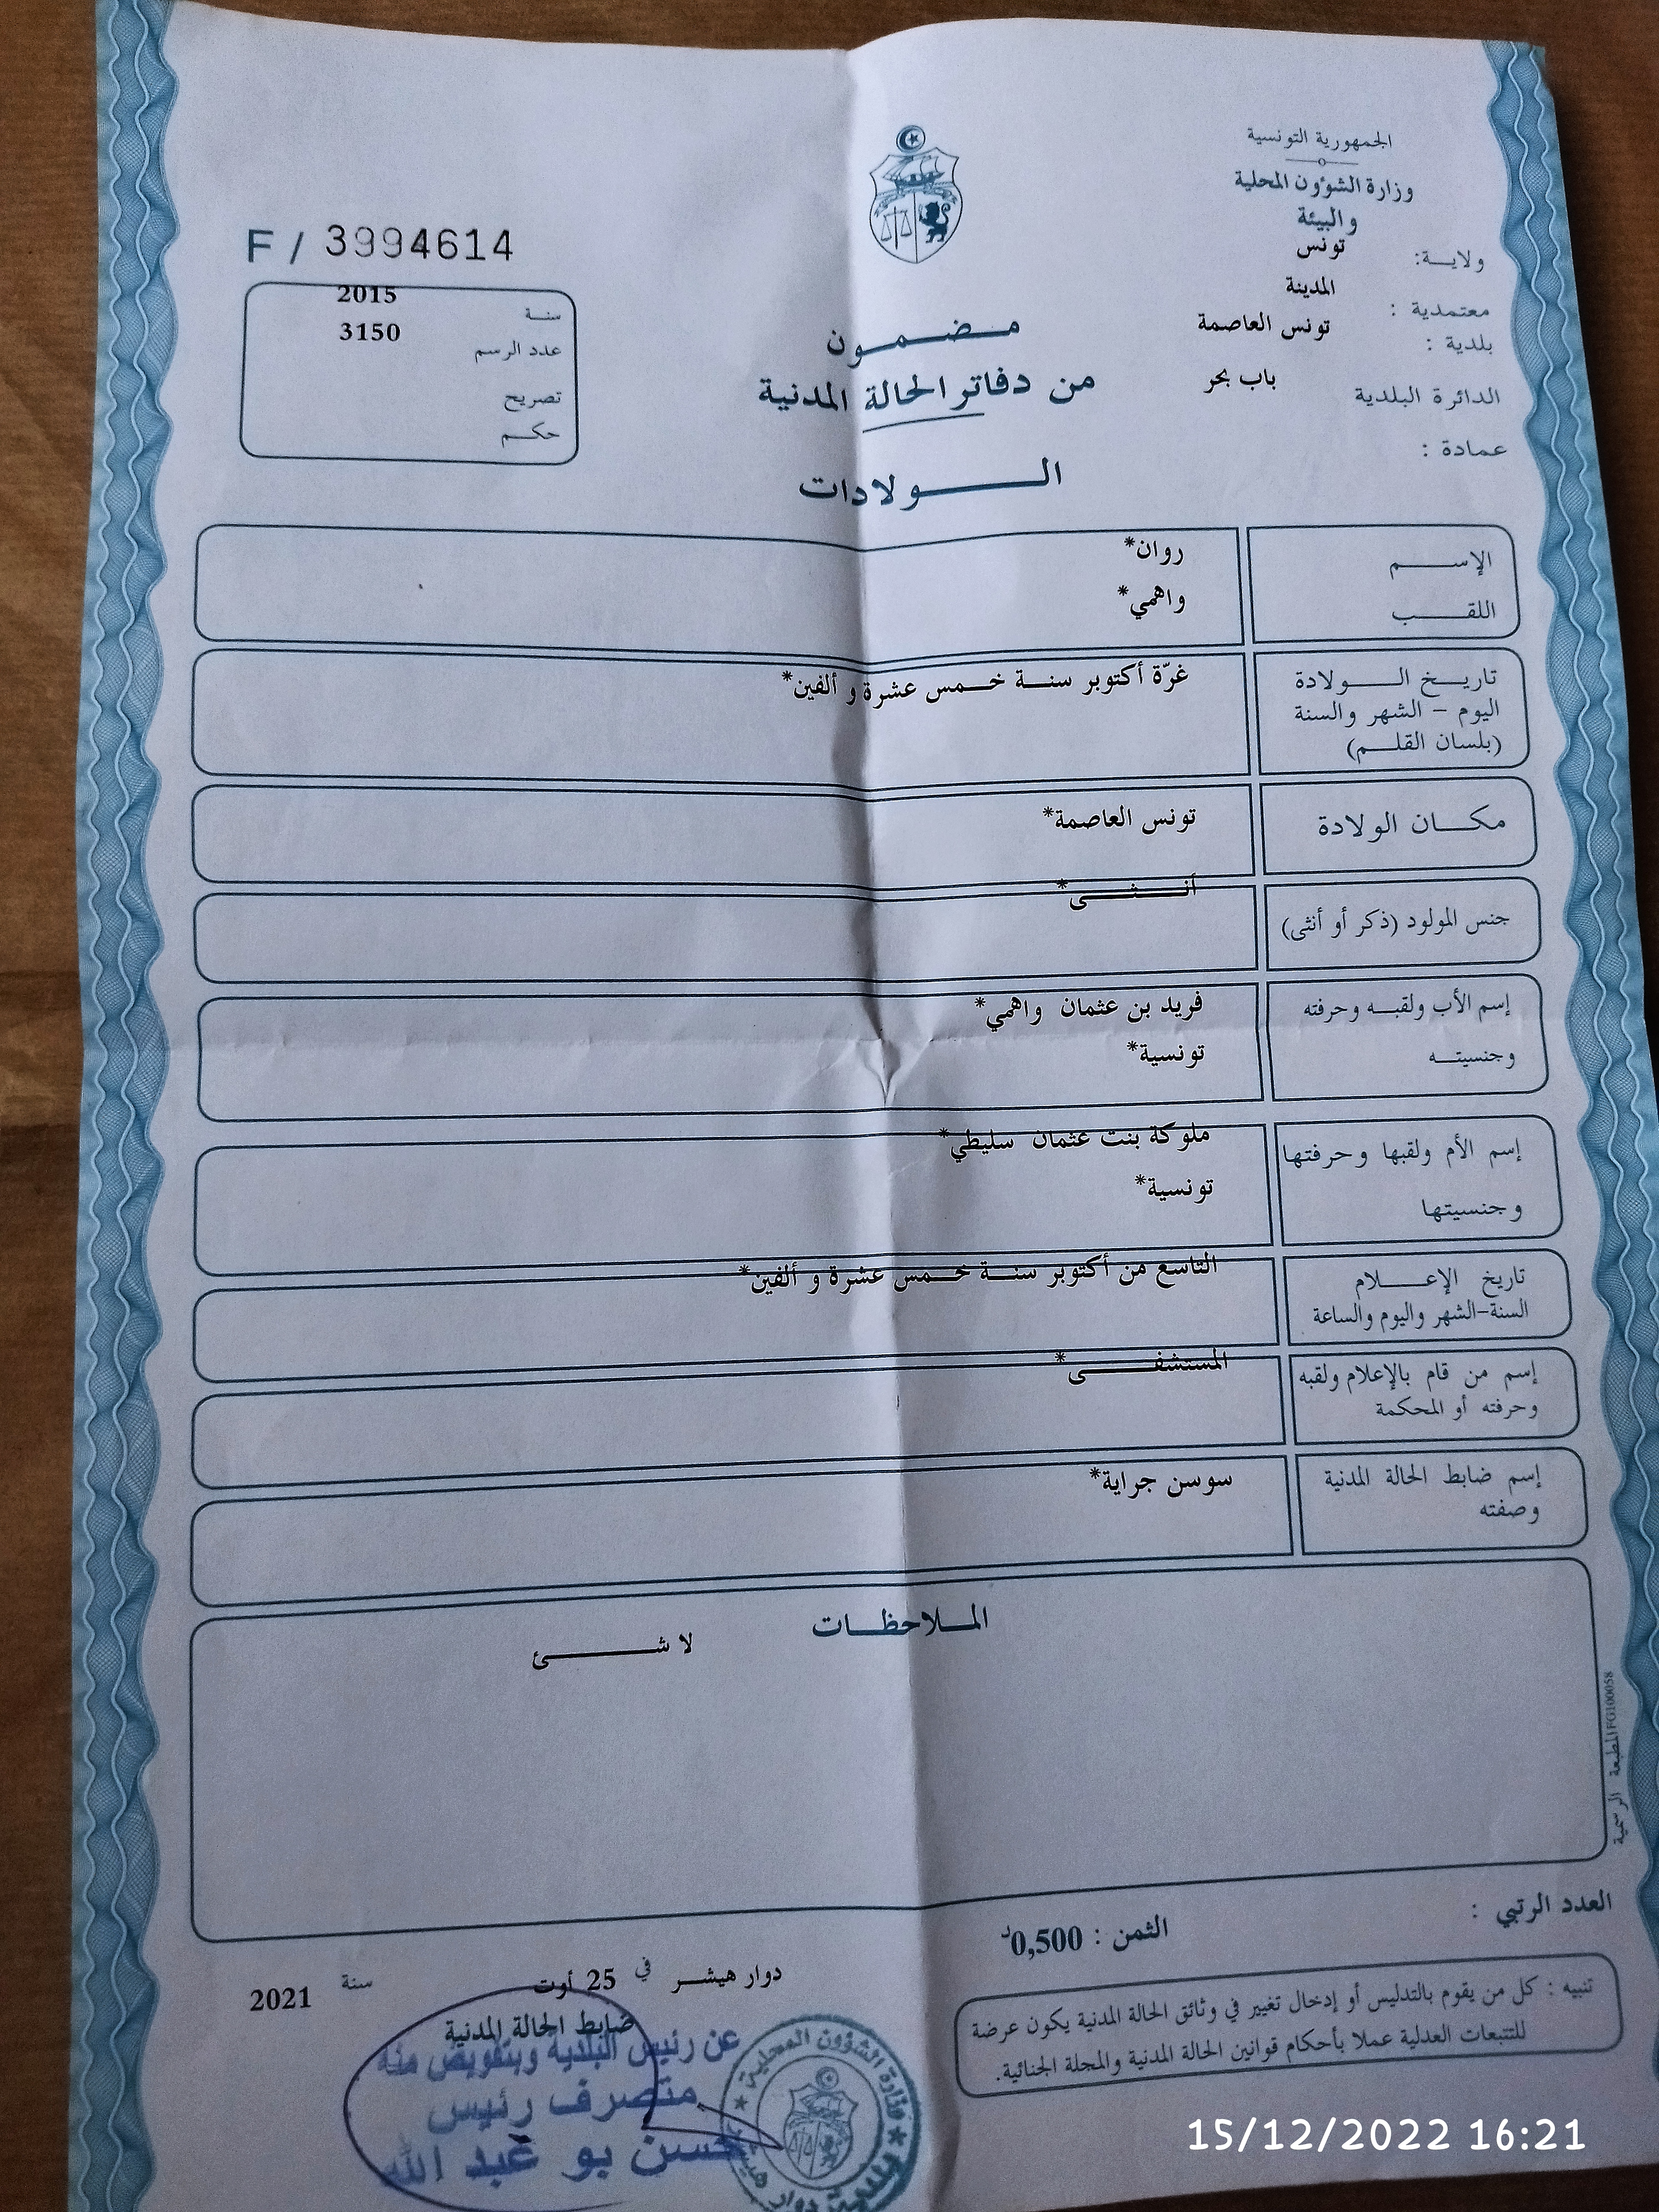 الجمهورية التونسية
وزارة الشؤون المحلية
والبيئة
ولايـة: تونس
معتمدية : المدينة
بلدية : تونس العاصمة
الدائرة البلدية باب بحر
عمادة :
F / 3994614
سنـة 2015
عدد الرسم 3150
تصريح
حكـم
مـضـمـون
من دفاتر الحالة المدنية
الـولادات
الإسـم روان*
اللقـب واهمي*
تاريـخ الـولادة غرّة أكتوبر سنـة خـمس عشرة و ألفين*
اليوم – الشهر والسنة
(بلسان القلـم)
مكـان الولادة تونس العاصمة*
جنس المولود (ذكر أو أنثى) أنـثـى*
إسم الأب ولقبـه وحرفته فريد بن عثمان واهمي*
وجنسيتـه تونسية*
إسم الأم ولقبها وحرفتها ملوكة بنت عثمان سليطي*
وجنسيتها تونسية*
تاريخ الإعـلام التاسع من أكتوبر سنـة خـمس عشرة و ألفين*
السنة-الشهر واليوم والساعة
إسم من قام بالإعلام ولقبه المستشفـى*
وحرفته أو المحكمة
إسم ضابط الحالة المدنية سوسن جراية*
وصفته
المـلاحظـات
لا شـئ
المطبعة الرسمية FG100058
العدد الرتبي :
الثمن : 0,500د
تنبيه : كل من يقوم بالتدليس أو إدخال تغيير في وثائق الحالة المدنية يكون عرضة
للتتبعات العدلية عملا بأحكام قوانين الحالة المدنية والمجلة الجنائية.
دوار هيشـر في 25 أوت سنة 2021
ضابط الحالة المدنية
عن رئيس البلدية وبتفويض منه
متصرف رئيس
حسن بو عبد الله
وزارة الشؤون المحلية
15/12/2022 16:21